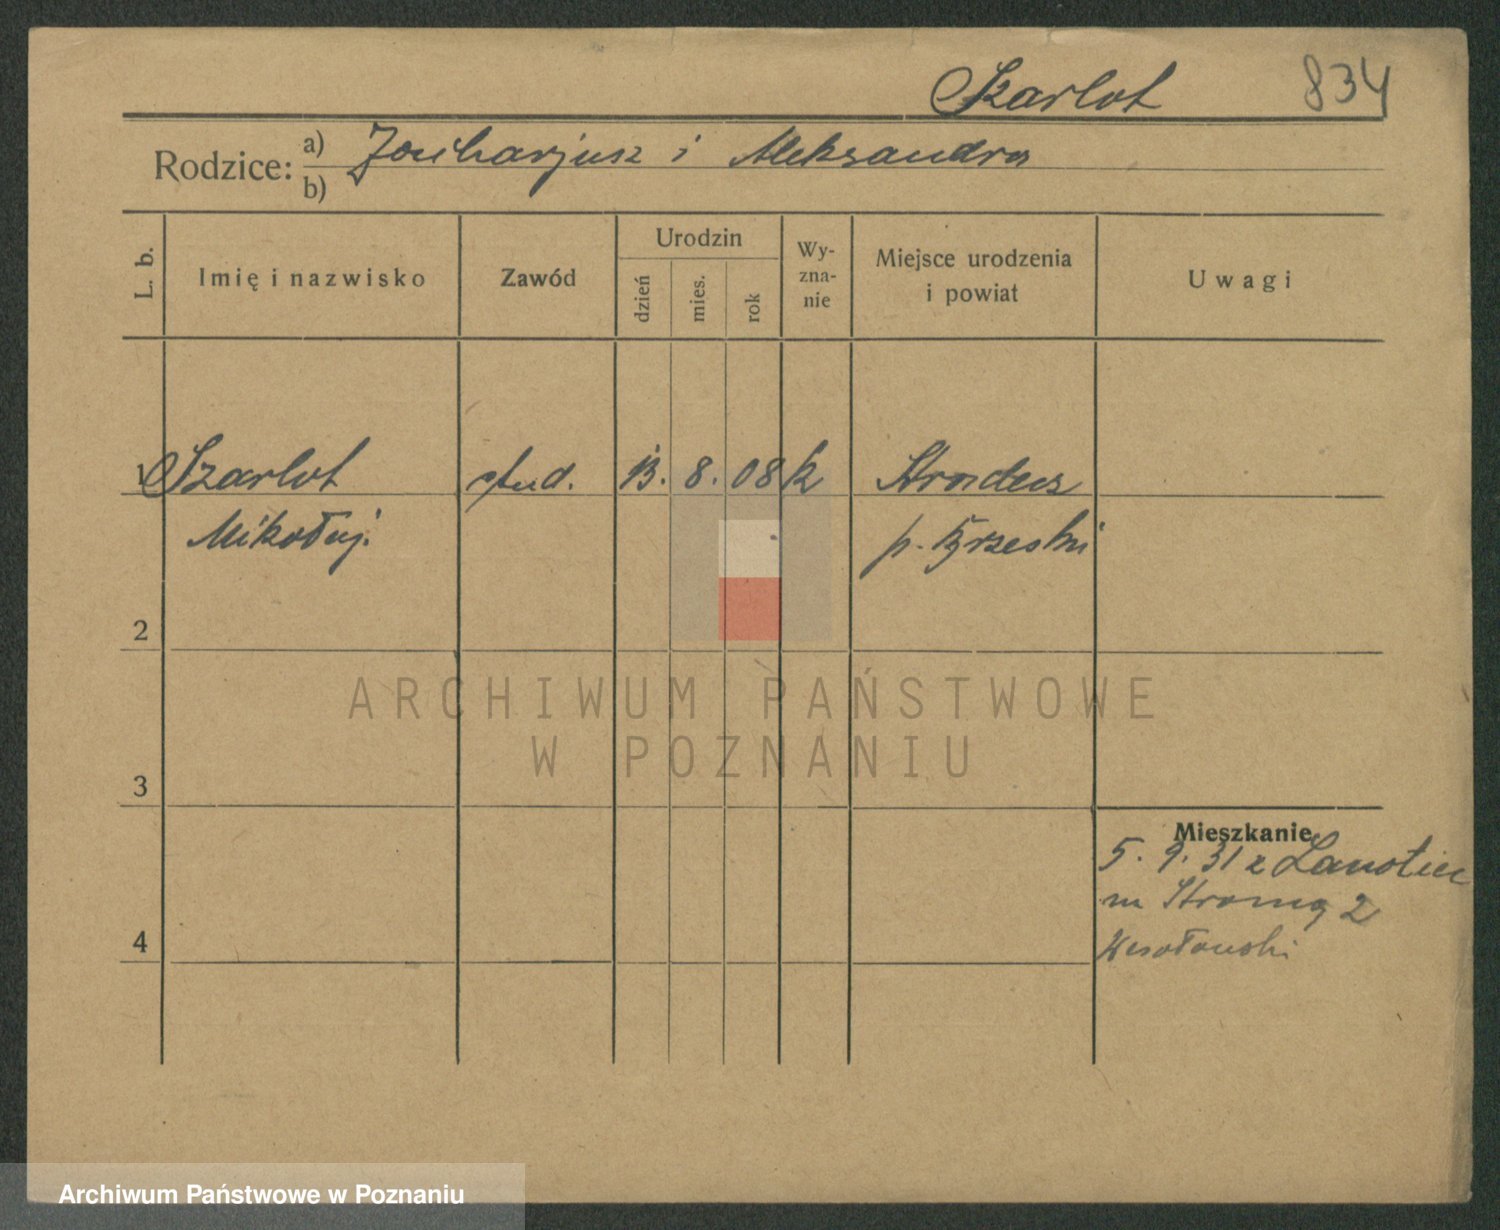 Szarlot 834
Rodzice: a) i Aleksandra
b)
L. b.
Imię i nazwisko
Zawód
Urodzin
dzień
mies.
rok
Wy-
zna-
nie
Miejsce urodzenia
i powiat
Uwagi
1 Szarlot stud. 13. 8. 08 k
Mikołaj. p. Brzeski
2
ARCHIWUM PAŃSTWOWE
W POZNANIU
3
Mieszkanie
5. 9. 31 z
na Stromą 2
4
Wesołowski
Archiwum Państwowe w Poznaniu